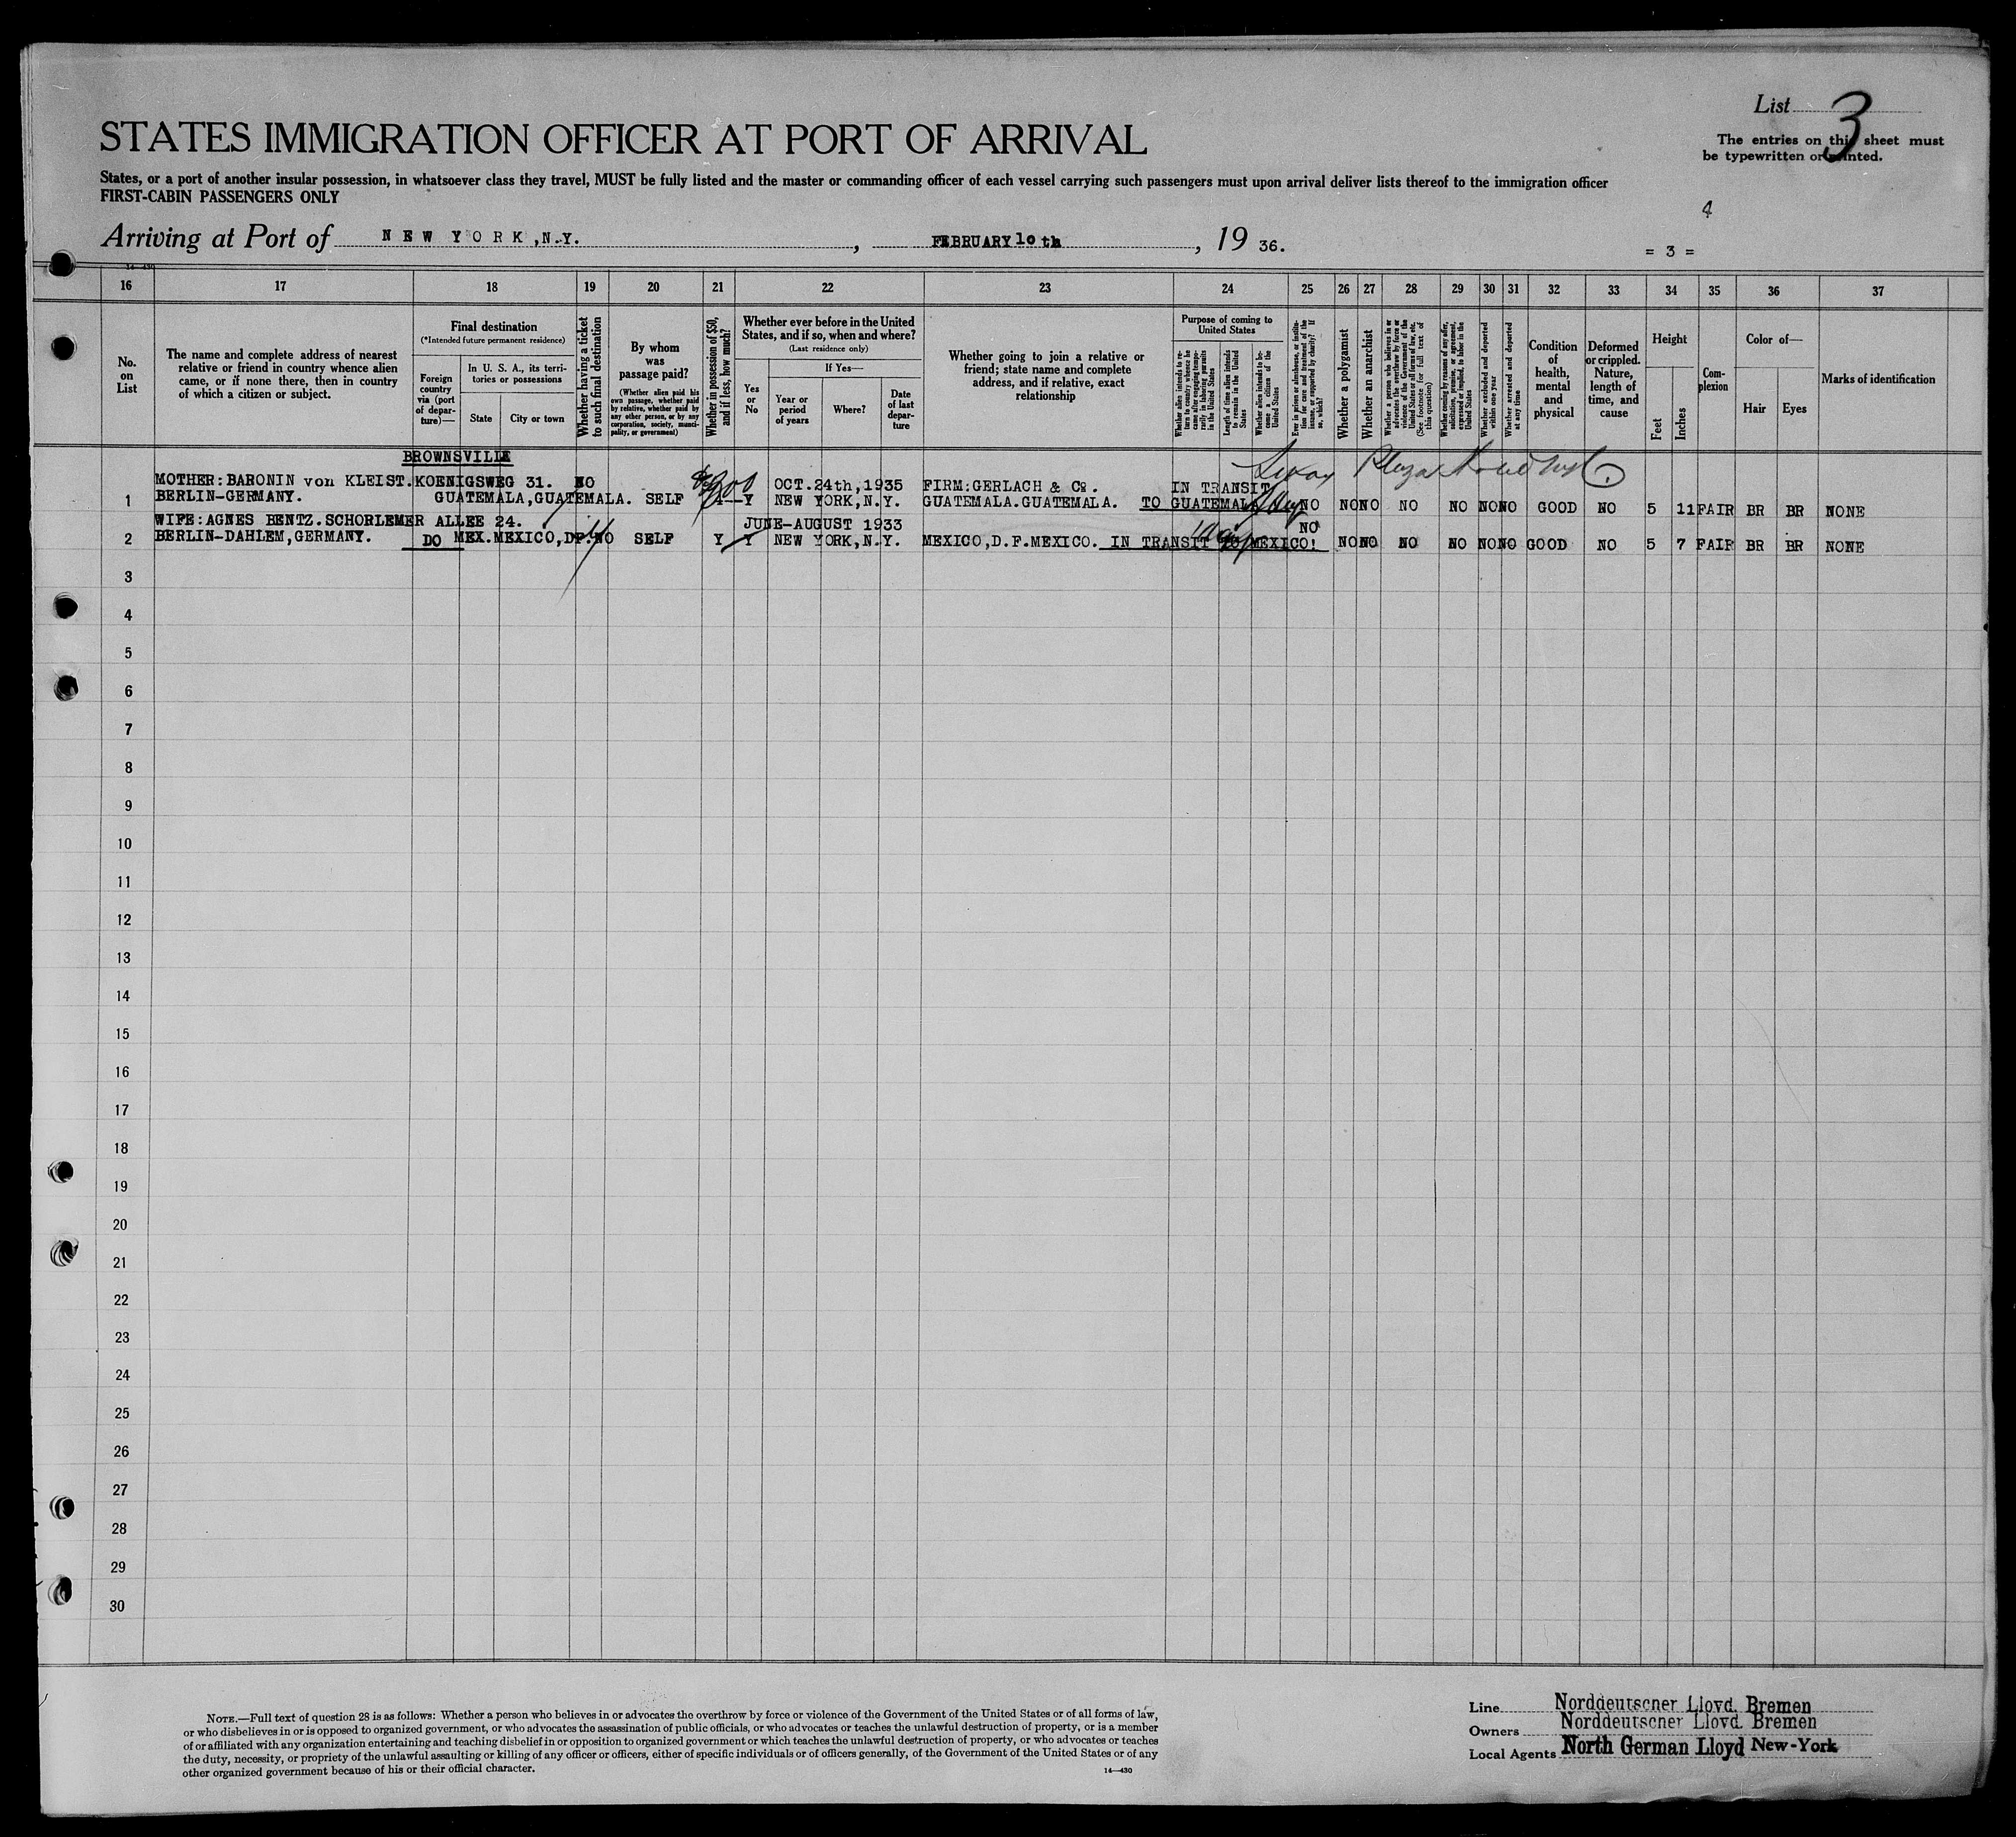 List 3
STATES IMMIGRATION OFFICER AT PORT OF ARRIVAL
The entries on this sheet must
be typewritten or printed.
States, or a port of another insular possession, in whatsoever class they travel, MUST be fully listed and the master or commanding officer of each vessel carrying such passengers must upon arrival deliver lists thereof to the immigration officer
FIRST-CABIN PASSENGERS ONLY
4
Arriving at Port of NEW YORK, N.Y. , FEBRUARY 10th , 19 36.
= 3 =
14-430
16 17 18 19 20 21 22 23 24 25 26 27 28 29 30 31 32 33 34 35 36 37
No. on List
The name and complete address of nearest relative or friend in country whence alien came, or if none there, then in country of which a citizen or subject.
Final destination
(*Intended future permanent residence)
Foreign country via (port of departure)—
In U. S. A., its territories or possessions
State
City or town
Whether having a ticket to such final destination
By whom was passage paid?
(Whether alien paid his own passage, whether paid by relative, whether paid by any other person, or by any corporation, society, municipality, or government)
Whether in possession of $50, and if less, how much?
Whether ever before in the United States, and if so, when and where?
(Last residence only)
Yes or No
If Yes—
Year or period of years
Where?
Date of last departure
Whether going to join a relative or friend; state name and complete address, and if relative, exact relationship
Purpose of coming to United States
Whether alien intends to return to country whence he came after engaging temporarily in laboring pursuits in the United States
Length of time alien intends to remain in the United States
Whether alien intends to become a citizen of the United States
Ever in prison or almshouse, or institution for care and treatment of the insane, or supported by charity? If so, which?
Whether a polygamist
Whether an anarchist
Whether a person who believes in or advocates the overthrow by force or violence of the Government of the United States or all forms of law, etc. (See footnote for full text of this question)
Whether coming by reasons of any offer, solicitation, promise, or agreement, expressed or implied, to labor in the United States
Whether excluded and deported within one year
Whether arrested and deported at any time
Condition of health, mental and physical
Deformed or crippled. Nature, length of time, and cause
Height
Feet
Inches
Complexion
Color of—
Hair
Eyes
Marks of identification
BROWNSVILLE
Plaza
MOTHER:BARONIN von KLEIST.KOENIGSWEG 31. NO OCT.24th,1935 FIRM:GERLACH & Co. IN TRANSIT
1 BERLIN-GERMANY. GUATEMALA,GUATEMALA. SELF Y NEW YORK,N.Y. GUATEMALA.GUATEMALA. TO GUATEMALA NO NO NO NO NO NO NO GOOD NO 5 11 FAIR BR BR NONE
WIFE:AGNES BENTZ.SCHORLEMER ALLEE 24. JUNE-AUGUST 1933 NO
2 BERLIN-DAHLEM,GERMANY. DO MEX.MEXICO,DF. NO SELF Y Y NEW YORK,N.Y. MEXICO,D.F.MEXICO. IN TRANSIT TO MEXICO! NO NO NO NO NO NO GOOD NO 5 7 FAIR BR BR NONE
3
4
5
6
7
8
9
10
11
12
13
14
15
16
17
18
19
20
21
22
23
24
25
26
27
28
29
30
NOTE.—Full text of question 28 is as follows: Whether a person who believes in or advocates the overthrow by force or violence of the Government of the United States or of all forms of law,
or who disbelieves in or is opposed to organized government, or who advocates the assassination of public officials, or who advocates or teaches the unlawful destruction of property, or is a member
of or affiliated with any organization entertaining and teaching disbelief in or opposition to organized government or which teaches the unlawful destruction of property, or who advocates or teaches
the duty, necessity, or propriety of the unlawful assaulting or killing of any officer or officers, either of specific individuals or of officers generally, of the Government of the United States or of any
other organized government because of his or their official character.
14-430
Line Norddeutscher Lloyd. Bremen
Owners Norddeutscher Lloyd. Bremen
Local Agents North German Lloyd New-York